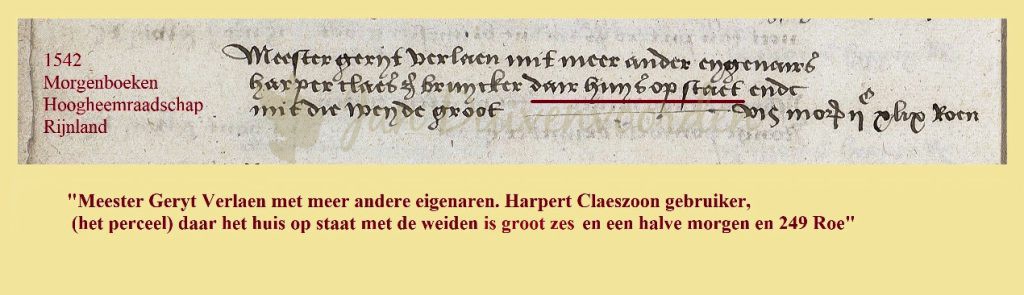 1542
Morgenboeken
Hoogheemraadschap
Rijnland
Meester geryt verlaen mit meer ander eygenairs
harper claesz bruycker dair huys op staet ende
mit die weyde groot morg ii xlix Roen
"Meester Geryt Verlaen met meer andere eigenaren. Harpert Claeszoon gebruiker,
(het perceel) daar het huis op staat met de weiden is groot zes en een halve morgen en 249 Roe"